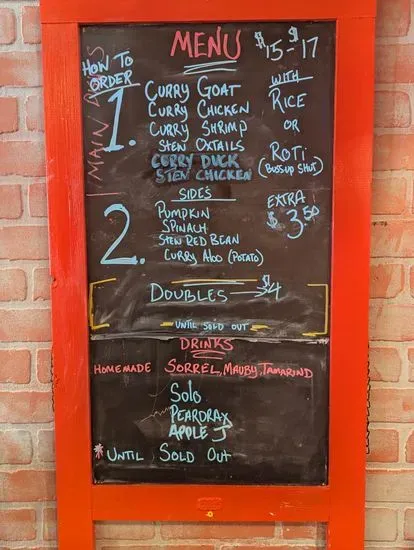 MENU
$15-$17
HOW TO ORDER
MAIN
1.
CURRY GOAT
CURRY CHICKEN
CURRY SHRIMP
STEW OXTAILS
CURRY DUCK
STEW CHICKEN
WITH
RICE
OR
ROTI
(BUSSUP SHUT)
SIDES
2.
PUMPKIN
SPINACH
STEW RED BEAN
CURRY ALOO (POTATO)
EXTRA
$3.50
DOUBLES → $4
UNTIL SOLD OUT
DRINKS
HOMEMADE SORREL, MAUBY, TAMARIND
SOLO
PEARDRAX
APPLE J
*UNTIL SOLD OUT